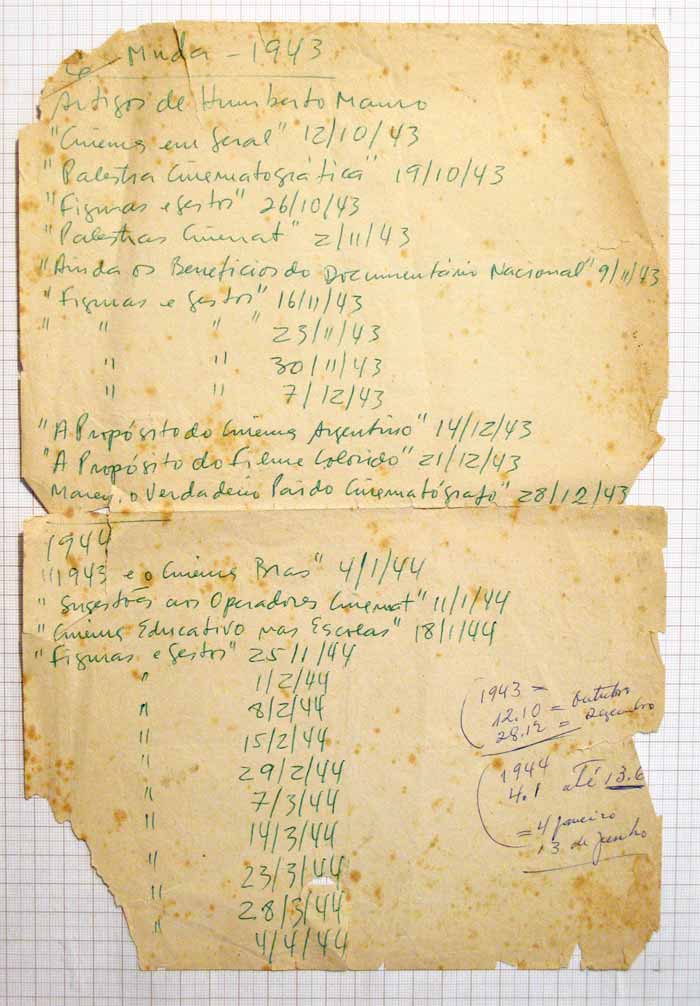 Muda - 1943
Artigos de Humberto Mauro
"Cinema em Geral" 12/10/43
"Palestra Cinematográfica" 19/10/43
"Figuras e gestos" 26/10/43
"Palestras Cinemat" 2/11/43
"Ainda os Benefícios do Documentário Nacional" 9/11/43
"Figuras e gestos" 16/11/43
" " " " 23/11/43
" " 30/11/43
" " 7/12/43
"A Propósito do Cinema Argentino" 14/12/43
"A Propósito do Filme Colorido" 21/12/43
Marey, o Verdadeiro Pai do Cinematógrafo" 28/12/43
1944
"1943 e o Cinema Bras" 4/1/44
"Sugestões aos Operadores Cinemat" 11/1/44
"Cinema Educativo nas Escolas" 18/1/44
"Figuras e gestos" 25/1/44
" 1/2/44
" 8/2/44
" 15/2/44
" 29/2/44
" 7/3/44
" 14/3/44
" 23/3/44
" 28/3/44
" 4/4/44
1943 =
12.10 = Outubro
28.12 = Dezembro
1944
4.1 até 13.6
= 4 janeiro
13 de junho